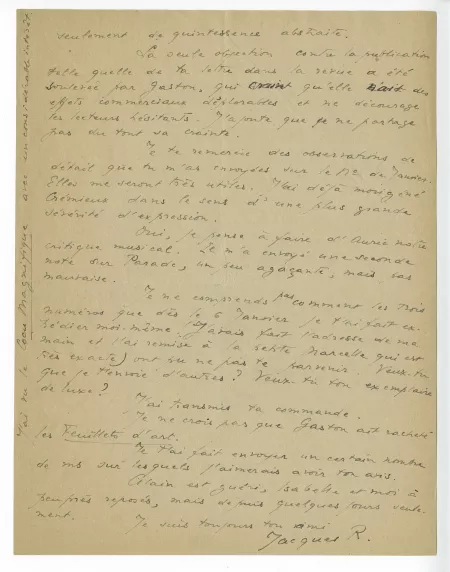 seulement de quintessence abstraite.
La seule objection contre la publication
telle quelle de ta lettre dans la revue a été
soulevée par Gaston, qui craint qu'elle n'ait des
effets commerciaux déplorables et ne décourage
les lecteurs hésitants. J'ajoute que je ne partage
pas du tout sa crainte.
Je te remercie des observations de
détail que tu m'as envoyées sur le N° de Janvier.
Elles me seront très utiles. J'ai déjà morigéné
Crémieux dans le sens d'une plus grande
sévérité d'expression.
Oui, je pense à faire d'Auric notre
critique musical. Il m'a envoyé une seconde
note sur Parade, un peu agaçante, mais pas
mauvaise.
Je ne comprends pas comment les trois
numéros que dès le 6 Janvier je t'ai fait ex-
pédier moi-même (j'avais fait l'adresse de ma
main et l'ai remise à la petite Marcelle qui est
très exacte) ont pu ne pas te parvenir. Veux-tu
que je t'envoie d'autres? Veux-tu ton exemplaire
de luxe?
J'ai transmis ta commande.
Je ne crois pas que Gaston ait racheté
les Feuillets d'art.
Je t'ai fait envoyer un certain nombre
de ms sur lesquels j'aimerais avoir ton avis.
Alain est guéri, Isabelle et moi à
peu près reposés, mais depuis quelques jours seule-
ment.
Je suis toujours ton ami
Jacques R.
J'ai vu le Cocu Magnifique avec un considérable intérêt.